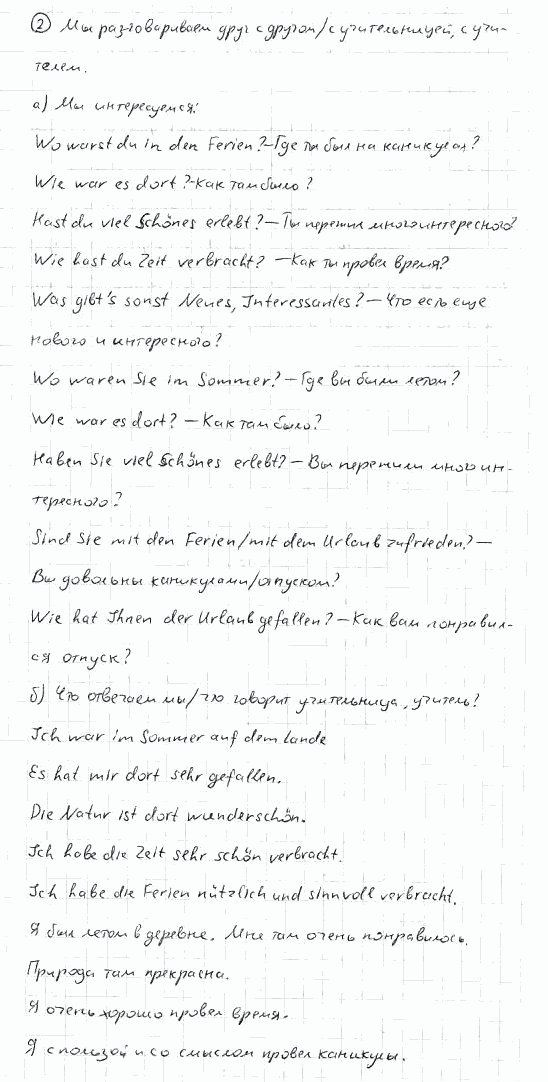 ② Мы разговариваем друг с другом/с учительницей, с учи-
телем.
а) Мы интересуемся:
Wo warst du in den Ferien? – Где ты был на каникулах?
Wie war es dort? – Как там было?
Hast du viel Schönes erlebt? – Ты пережил много интересного?
Wie hast du Zeit verbracht? – Как ты провел время?
Was gibt's sonst Neues, Interessantes? – Что есть еще
нового и интересного?
Wo waren Sie im Sommer? – Где вы были летом?
Wie war es dort? – Как там было?
Haben Sie viel Schönes erlebt? – Вы пережили много ин-
тересного?
Sind Sie mit den Ferien/mit dem Urlaub zufrieden? –
Вы довольны каникулами/отпуском?
Wie hat Ihnen der Urlaub gefallen? – Как вам понравил-
ся отпуск?
б) Что отвечаем мы/что говорит учительница, учитель?
Ich war im Sommer auf dem Lande
Es hat mir dort sehr gefallen.
Die Natur ist dort wunderschön.
Ich habe die Zeit sehr schön verbracht.
Ich habe die Ferien nützlich und sinnvoll verbracht.
Я был летом в деревне. Мне там очень понравилось.
Природа там прекрасна.
Я очень хорошо провел время.
Я с пользой и со смыслом провел каникулы.